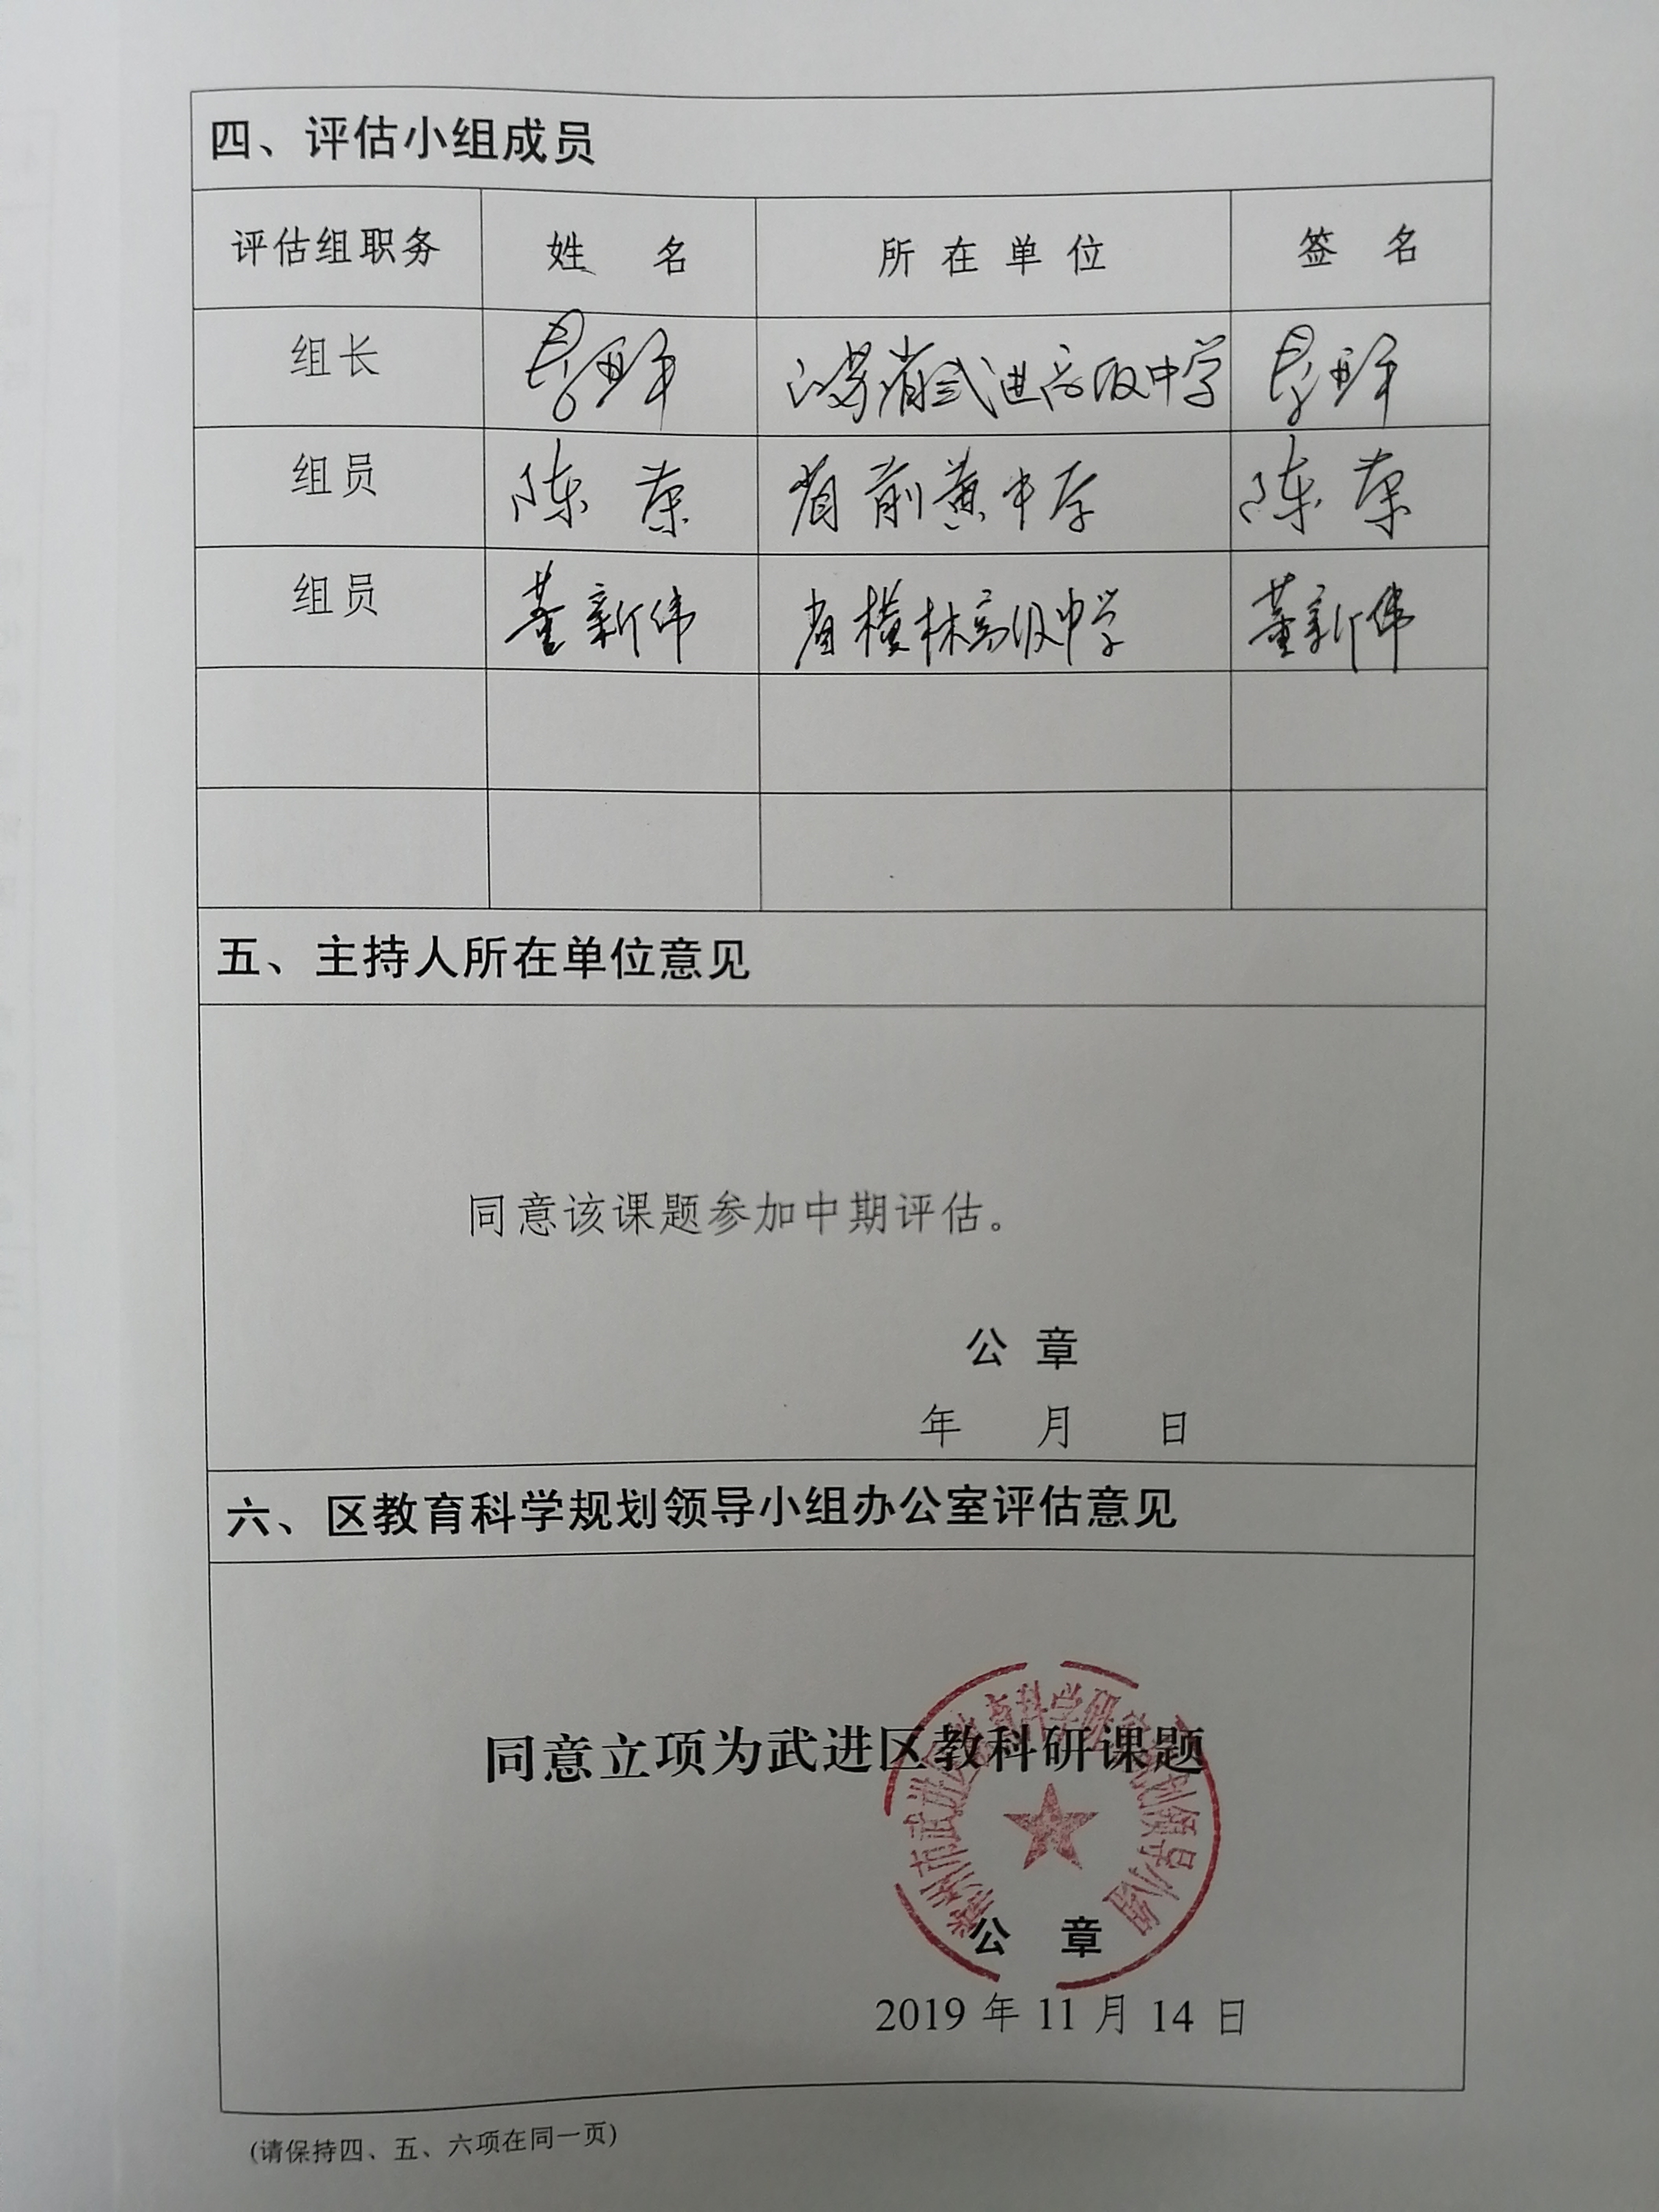 四、评估小组成员
评估组职务 姓 名 所在单位 签 名
组长 江苏省武进高级中学
组员 陈荣 省前黄中学 陈荣
组员 董新伟 省横林高级中学 董新伟
五、主持人所在单位意见
同意该课题参加中期评估。
公 章
年 月 日
六、区教育科学规划领导小组办公室评估意见
常州市武进区教育科学研究规划领导小组
同意立项为武进区教科研课题
公 章
2019 年 11 月 14 日
(请保持四、五、六项在同一页)